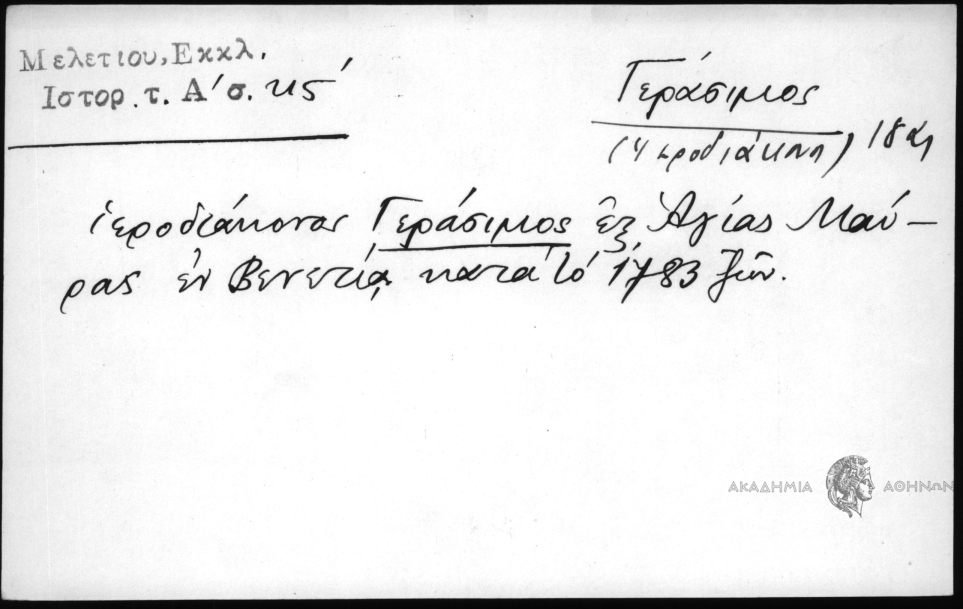 Μελετιου, Εκκλ.
Ιστορ. τ. Α' σ. κς'
Γεράσιμος
(ἱεροδιάκονος) 18 αἰ
ἱεροδιάκονος Γεράσιμος ἐξ Ἁγίας Μαύ-
ρας ἐν Βενετίᾳ κατὰ τὸ 1783 ζῶν.
ΑΚΑΔΗΜΙΑ ΑΘΗΝΩΝ